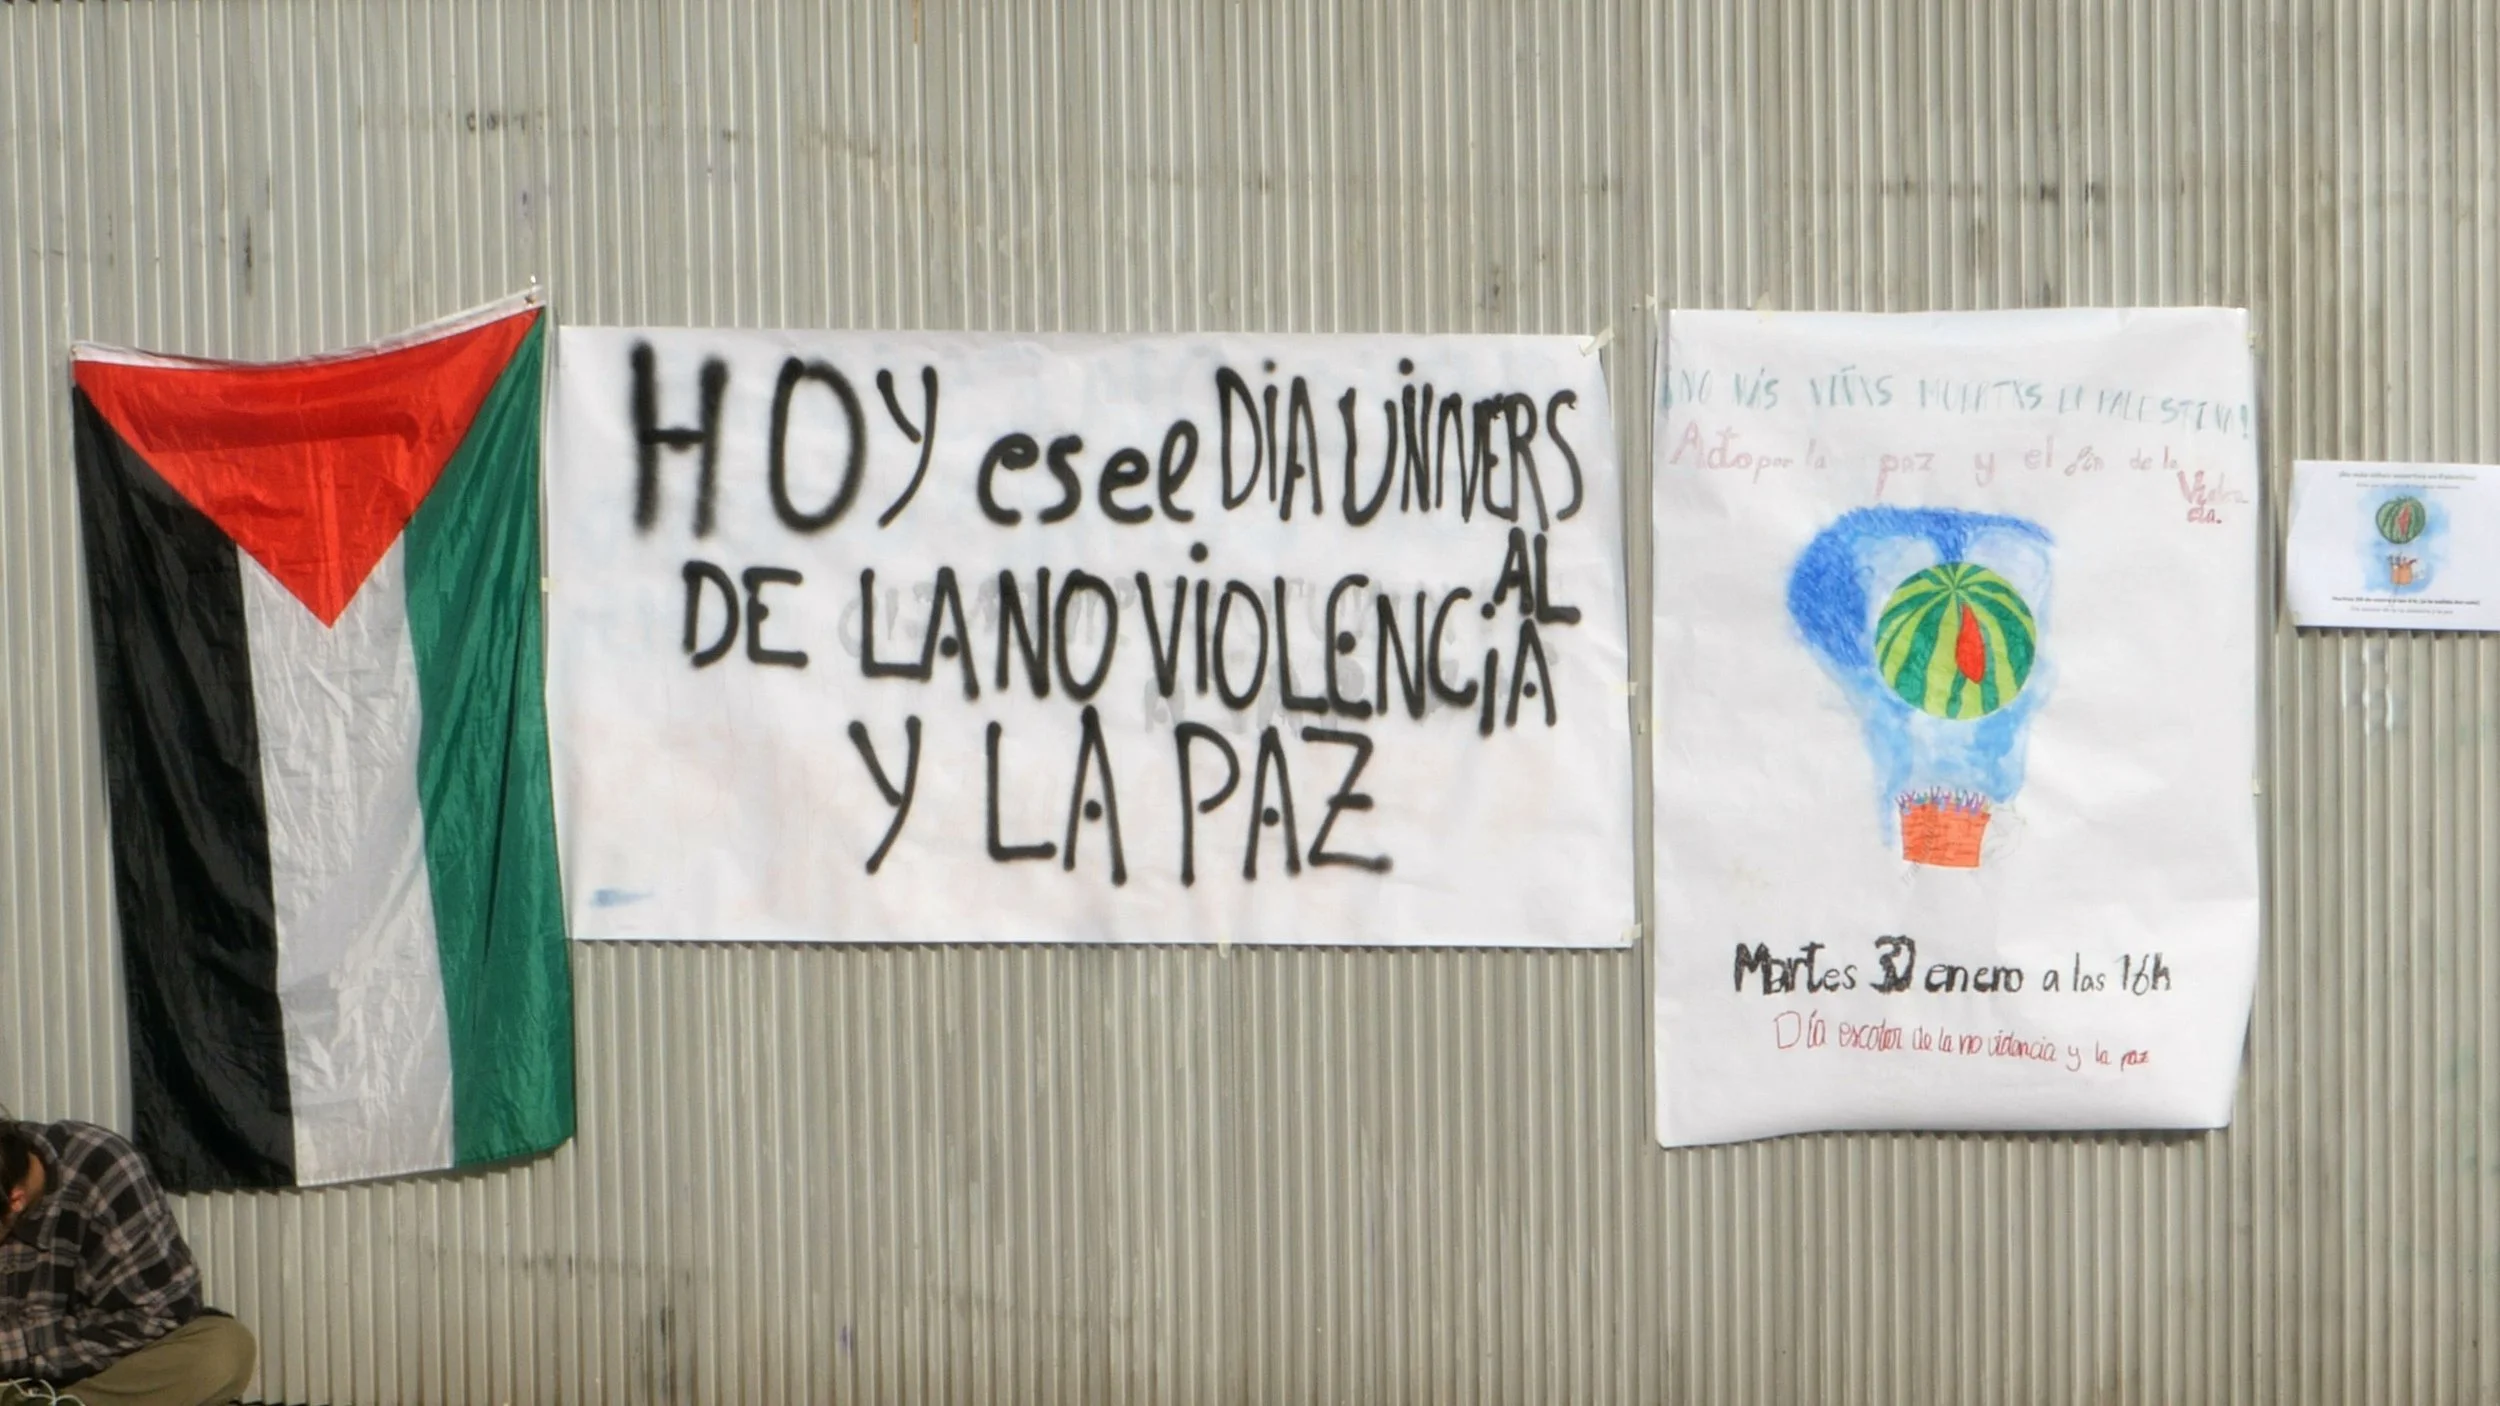 HOY es el DIA UNIVERSAL
DE LA NO VIOLENCIA
Y LA PAZ
¡NO MÁS NIÑXS MUERTXS EN PALESTINA!
Acto por la paz y el fin de la
Violencia.
Martes 30 enero a las 16h
Día escolar de la no violencia y la paz